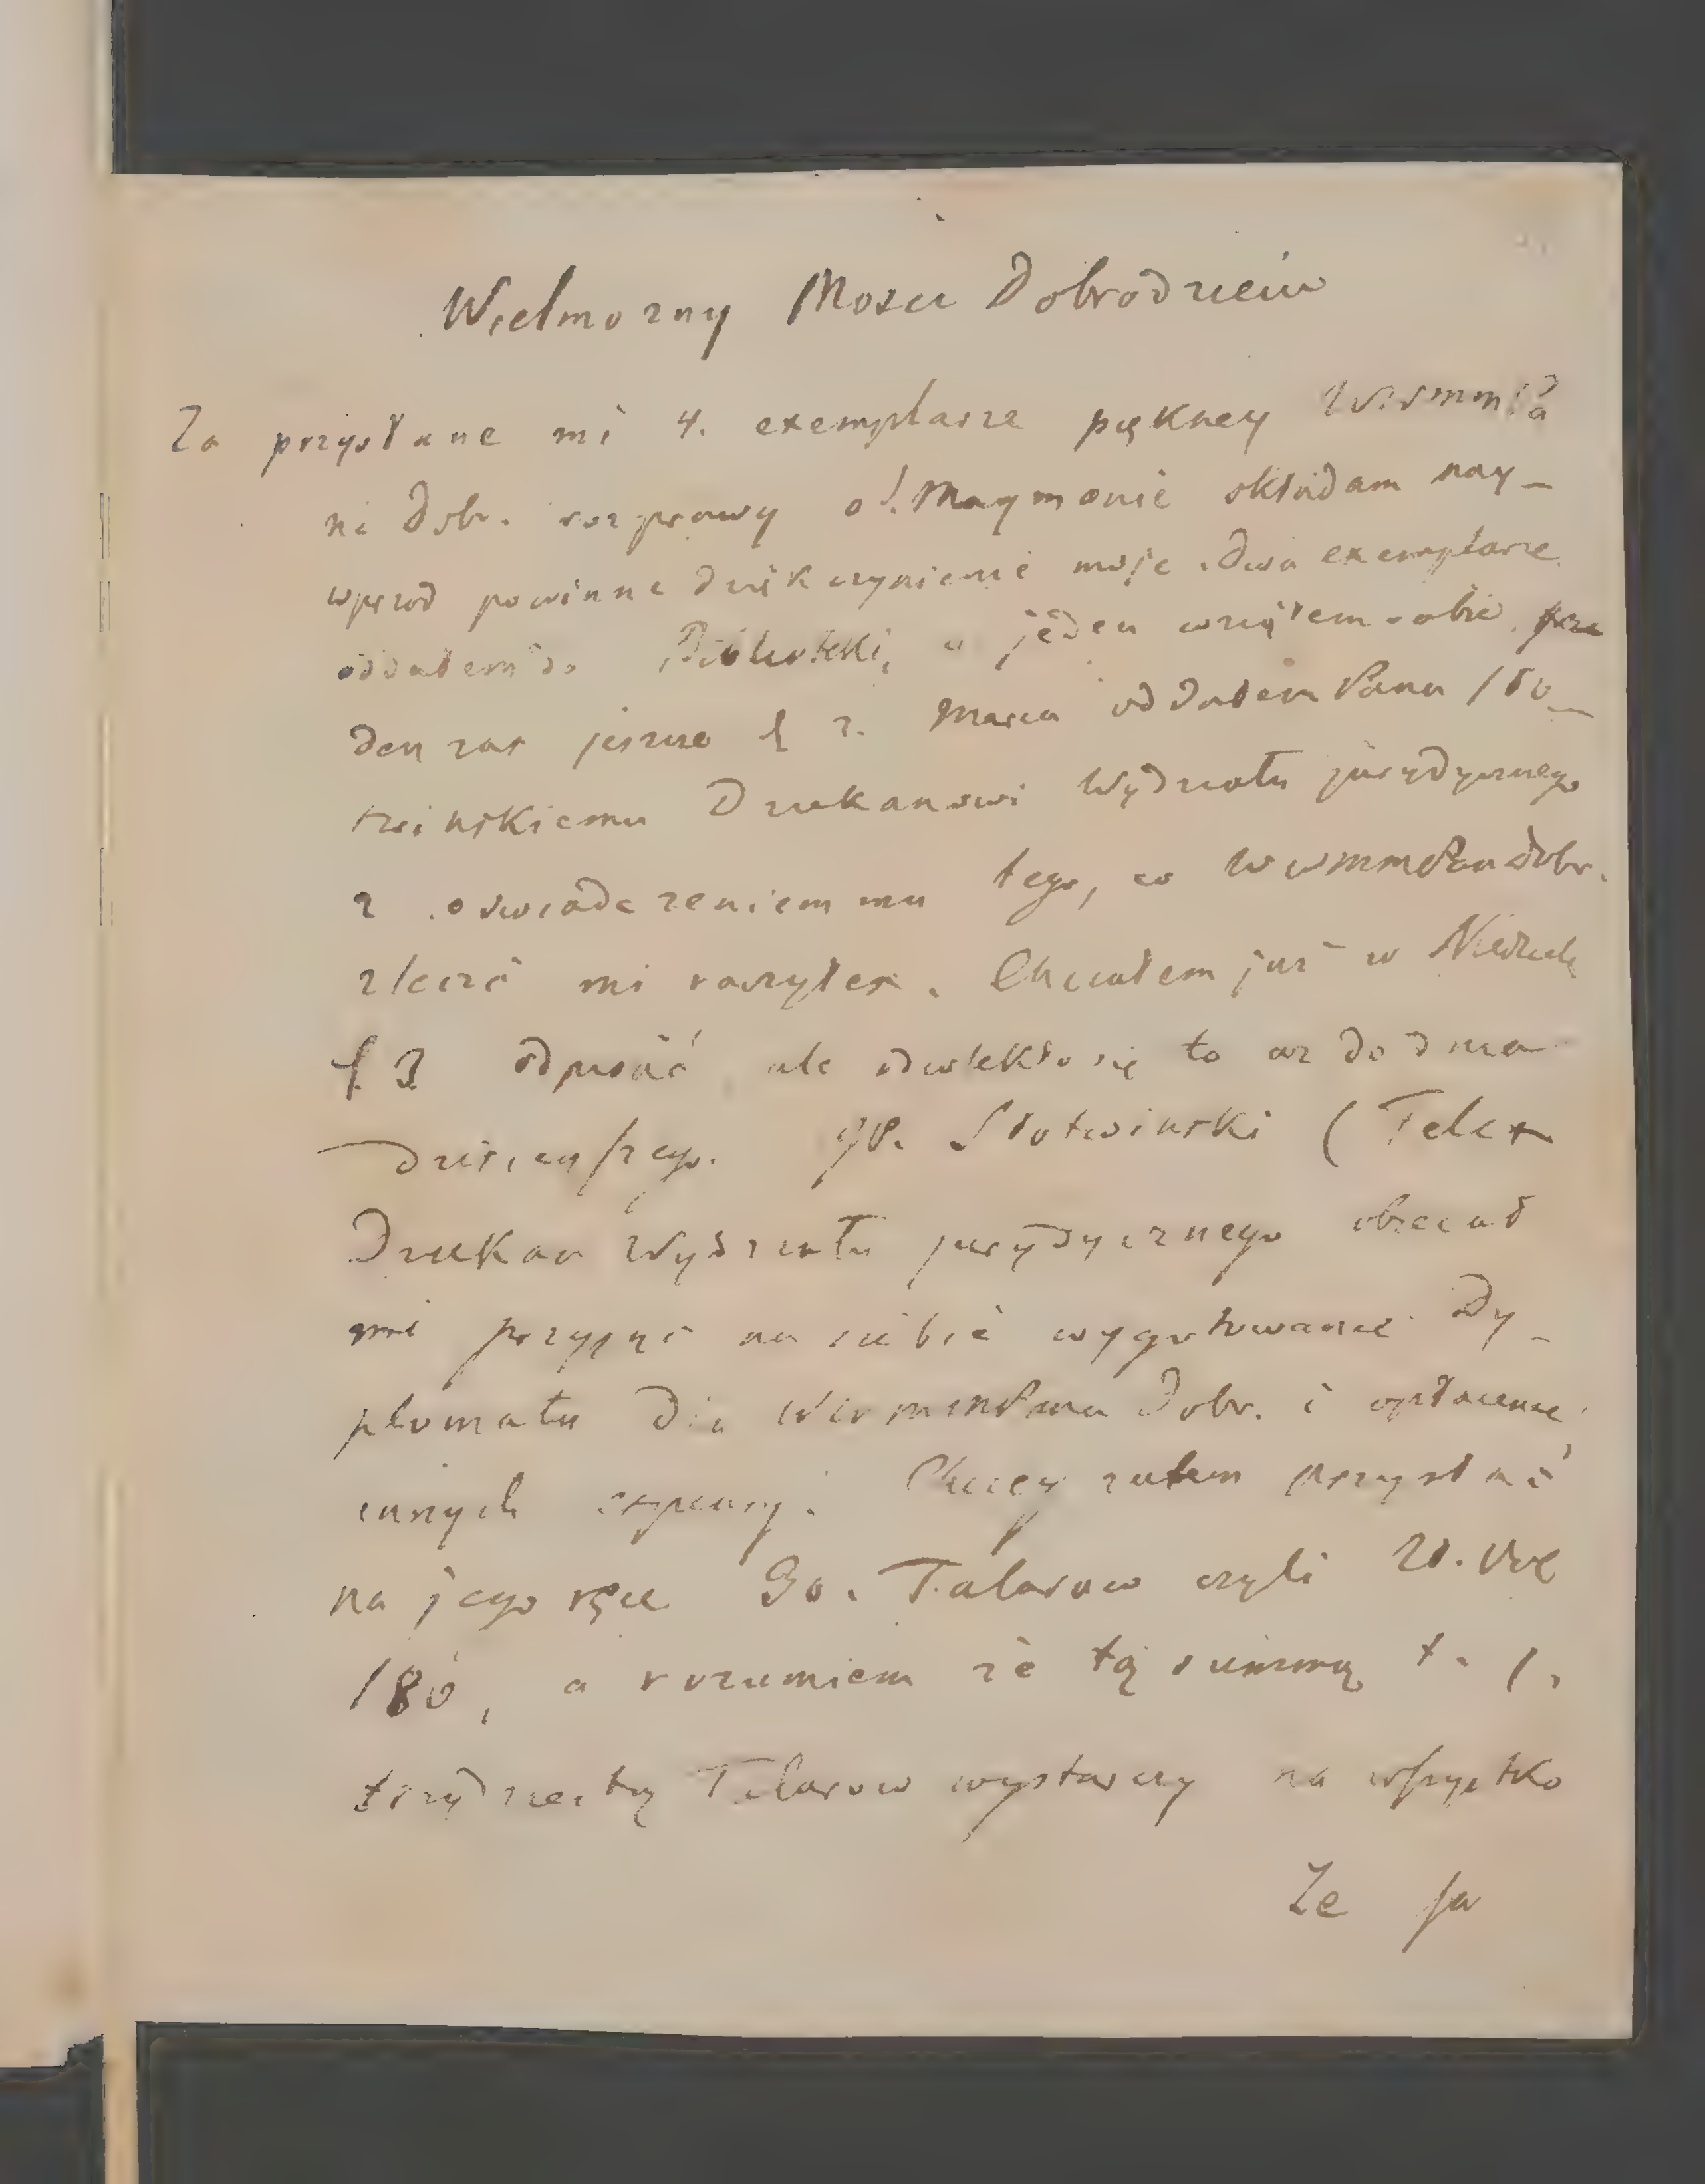 Wielmozny Mosci Dobrodzieiu
Za przysłane mi 4. exemplarze piękney
ni Dobr. rozprawy o Maymonie składam nay-
wprzod powinne dziękczynienie moje. Dwa exemplarze
oddałem do Biblioteki, a jeden wziąłem sobie.
den zas jeszcze d 2. Marca oddałem Panu Sło-
twinskiemu Dziekanowi Wydziału jurydycznego
z oswiadczeniem mu tego, co dobr.
zlecić mi raczyłes. Chciałem już w Niedziele
d 3 odpisać, ale odwlekło się to az do dnia
dzisieyszego. JP. Słotwinski (Felix
Dziekan Wydziału jurydycznego obiecał
mi przyjąć na siebie wygotowanie Dy-
plomatu dla Dobr. i opłacenie
innych expensy. Chciey zatem przysłać
na jego ręce 30. Talarow czyli
180, a rozumiem ze tą summą t. j.
trzydziestą Talarow wystarczy na wszystko
Ze sa